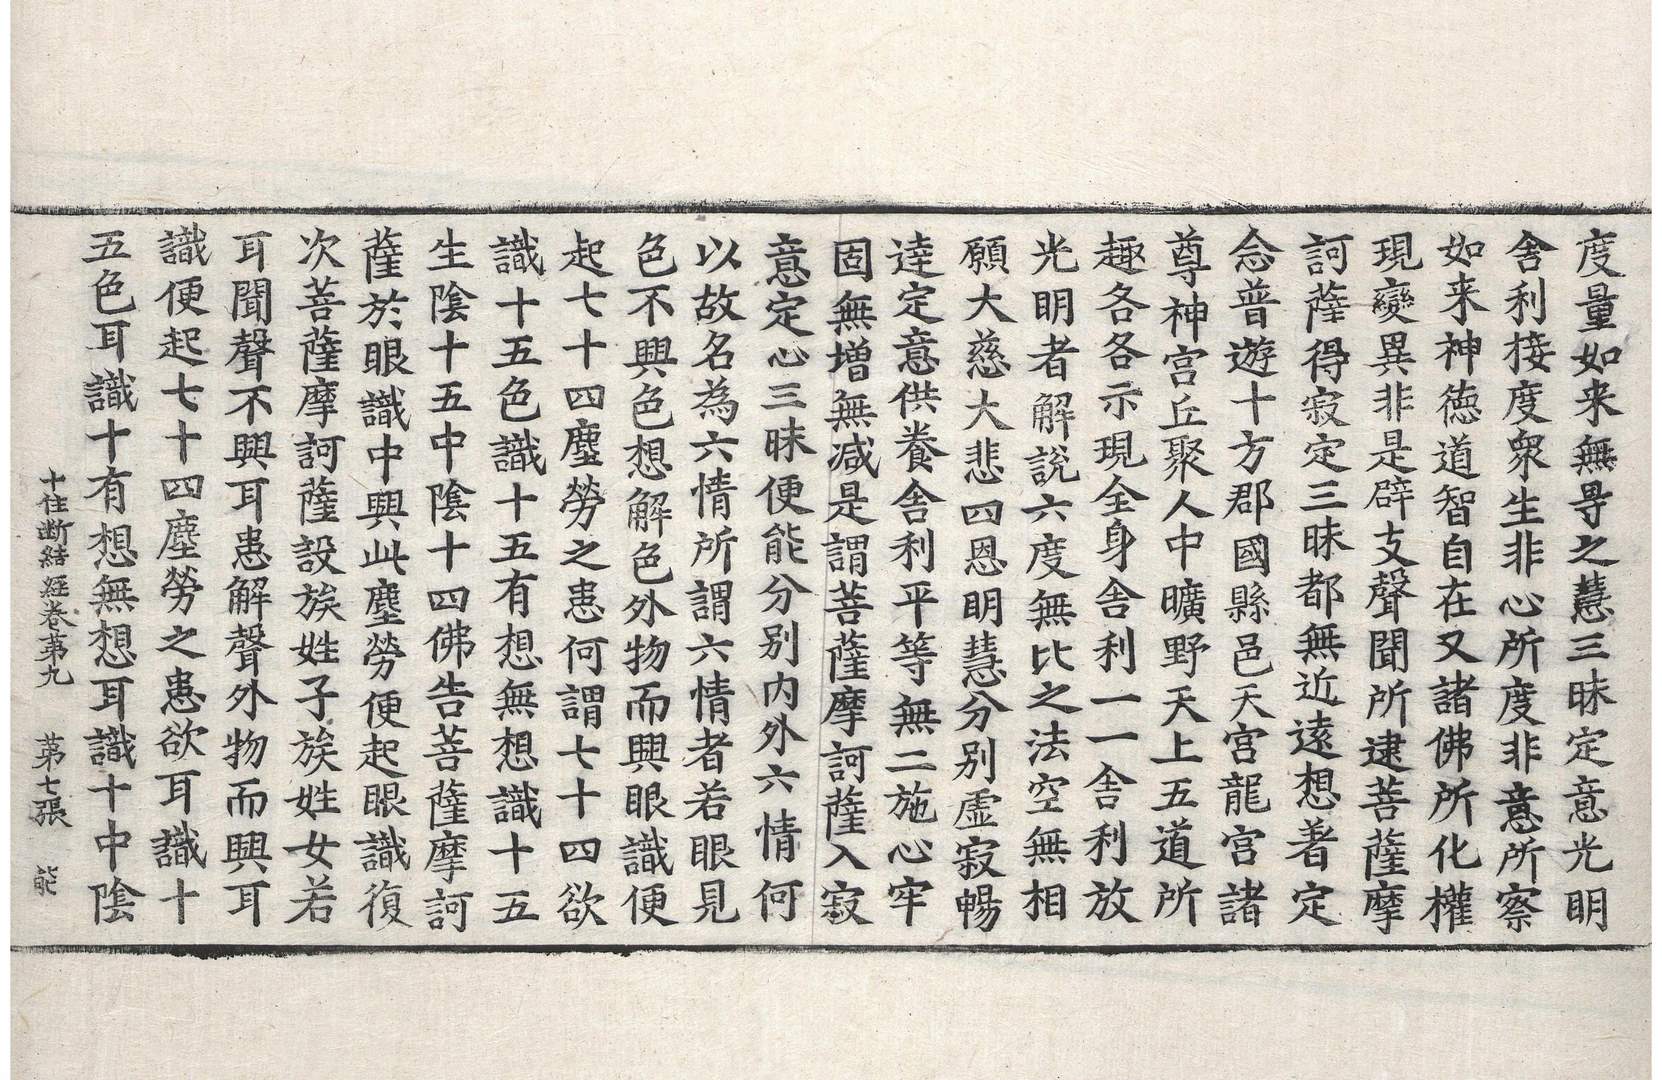 度量如来無㝵之慧三昧定意光明
舍利接度衆生非心所度非意所察
如来神德道智自在又諸佛所化權
現變異非是辟支聲聞所逮菩薩摩
訶薩得寂定三昧都無近遠想著定
念普遊十方郡國縣邑天宮龍宮諸
尊神宮丘聚人中曠野天上五道所
趣各各示現全身舍利一一舍利放
光明者解說六度無比之法空無相
願大慈大悲四恩明慧分別虛寂暢
達定意供養舍利平等無二施心牢
固無增無減是謂菩薩摩訶薩入寂
意定心三昧便能分別内外六情何
以故名為六情所謂六情者若眼見
色不興色想解色外物而興眼識便
起七十四塵勞之患何謂七十四欲
識十五色識十五有想無想識十五
生陰十五中陰十四佛告菩薩摩訶
薩於眼識中興此塵勞便起眼識復
次菩薩摩訶薩設族姓子族姓女若
耳聞聲不興耳患解聲外物而興耳
識便起七十四塵勞之患欲耳識十
五色耳識十有想無想耳識十中陰
十住断結経卷苐九 苐七張 能